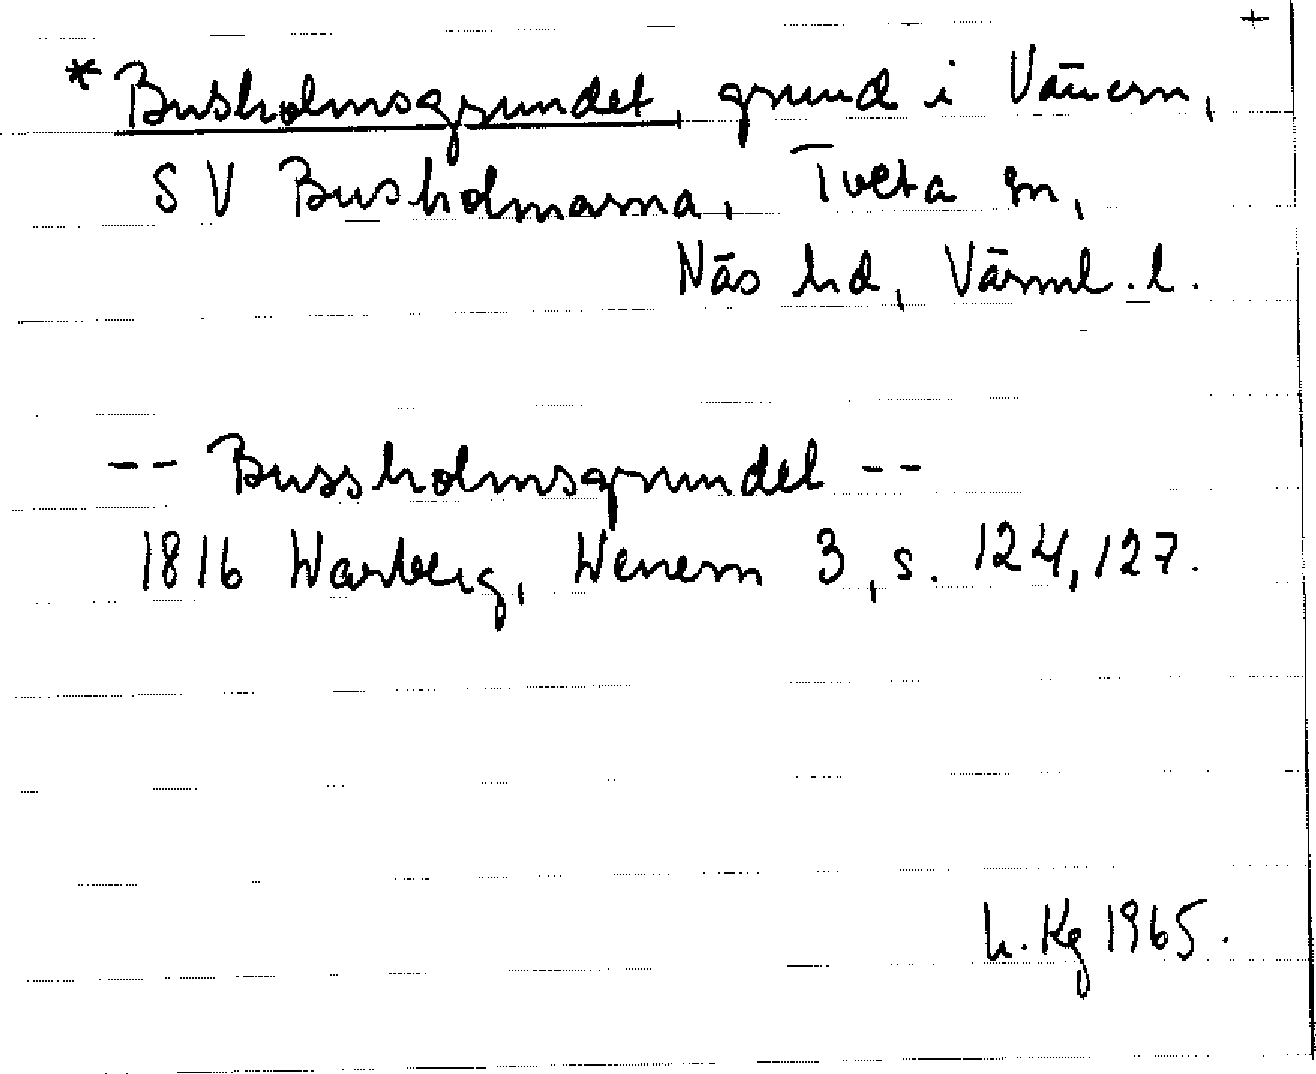 +
* Busholmsgrundet, grund i Vänern,
SV Busholmarna, Tveta sn,
Näs hd, Värml. l.
-- Bussholmsgrundet --
1816 Warberg, Wenern 3, s. 124, 127.
h. Kg 1965.